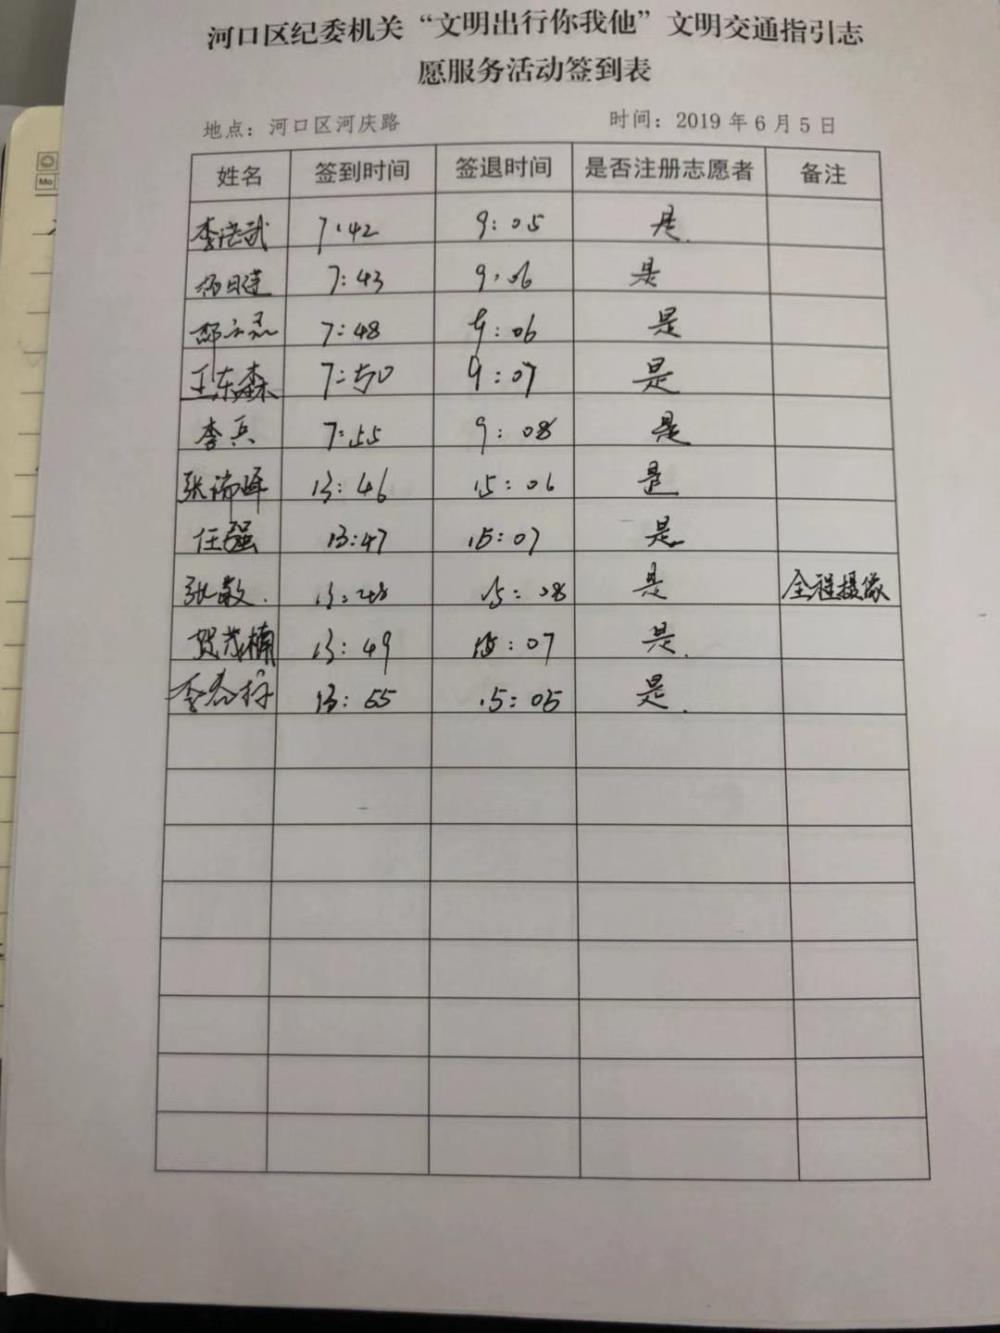 河口区纪委机关“文明出行你我他”文明交通指引志
愿服务活动签到表
地点：河口区河庆路 时间：2019年6月5日
姓名 签到时间 签退时间 是否注册志愿者 备注
7:42 9:05 是
7:43 9:06 是
7:48 9:06 是
王东森 7:50 9:07 是
李兵 7:55 9:08 是
13:46 15:06 是
任强 13:47 15:07 是
张敏 13:48 15:08 是 全程摄像
贺茂楠 13:49 15:07 是
13:55 15:05 是